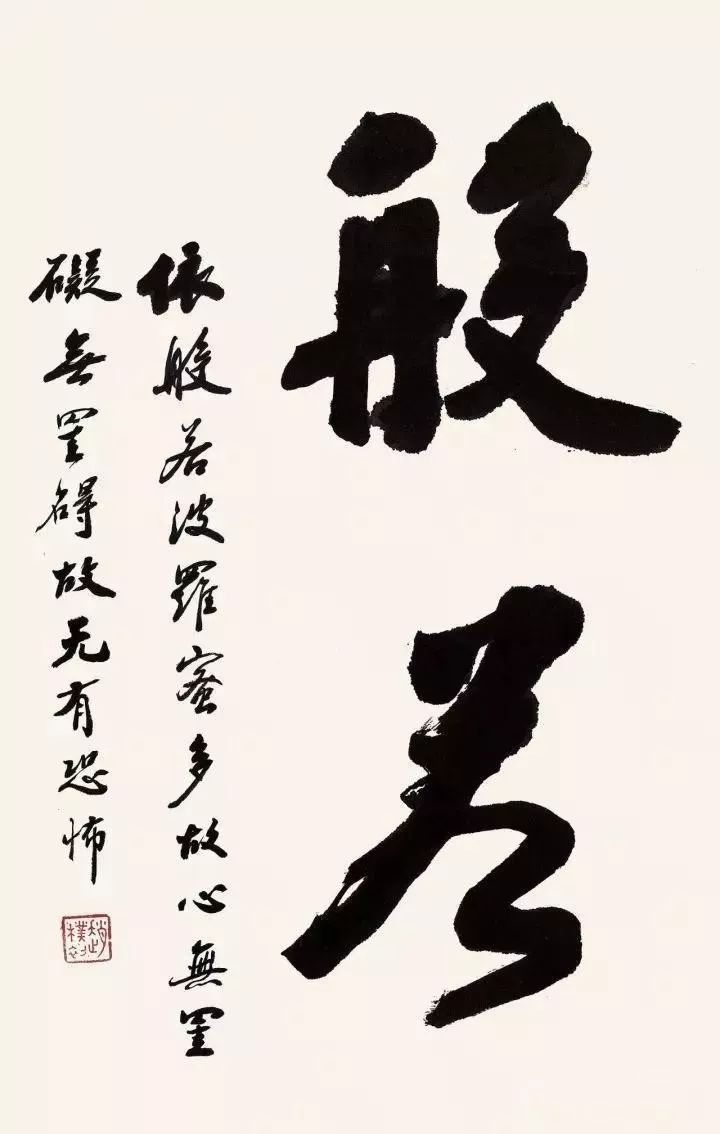 般若
依般若波羅蜜多故心無罣
礙無罣碍故无有恐怖
趙樸初